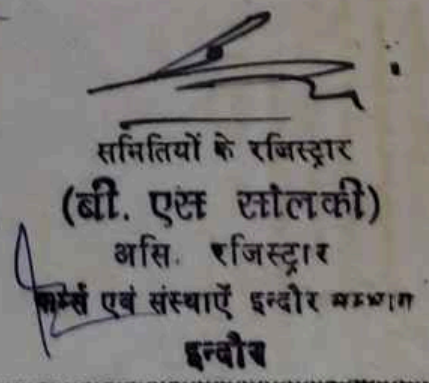 समितियों के रजिस्ट्रार
(बी. एस सोलंकी)
असि. रजिस्ट्रार
फर्म्स एवं संस्थाऐं इन्दौर सम्भाग
इन्दौर